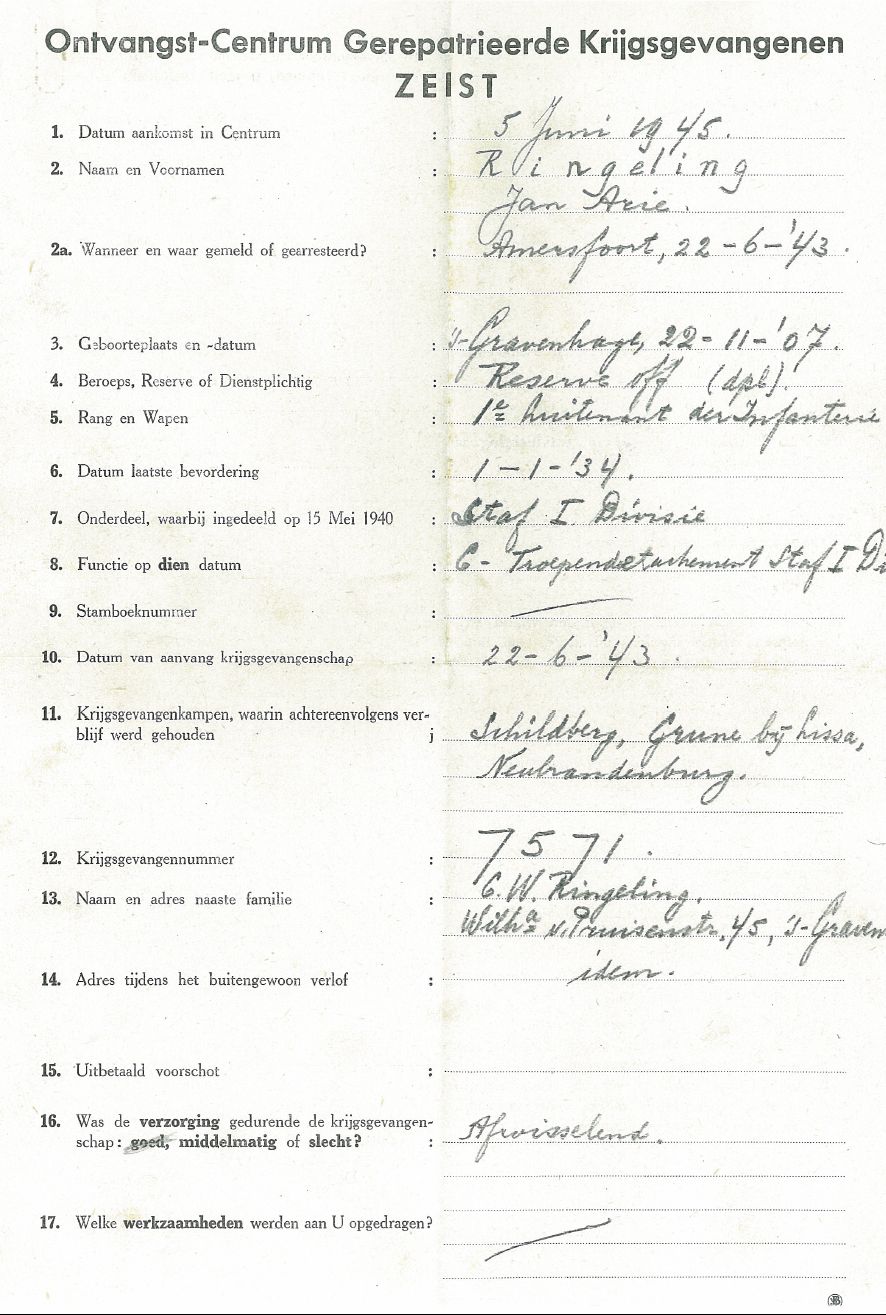 Ontvangst-Centrum Gerepatrieerde Krijgsgevangenen
ZEIST
1. Datum aankomst in Centrum : 5 Juni 1945.
2. Naam en Voornamen : Ringeling
Jan Arie.
2a. Wanneer en waar gemeld of gearresteerd? : Amersfoort, 22-6-'43.
3. Geboorteplaats en -datum : 's-Gravenhage, 22-11-'07.
4. Beroeps, Reserve of Dienstplichtig : Reserve off (dpl).
5. Rang en Wapen : 1e Luitenant der Infanterie
6. Datum laatste bevordering : 1-1-'34.
7. Onderdeel, waarbij ingedeeld op 15 Mei 1940 : Staf I Divisie
8. Functie op dien datum : C- Troependetachement Staf I Di
9. Stamboeknummer :
10. Datum van aanvang krijgsgevangenschap : 22-6-'43.
11. Krijgsgevangenkampen, waarin achtereenvolgens ver-
blijf werd gehouden j Schildberg, Grune bij Lissa,
Neubrandenburg.
12. Krijgsgevangennummer : 7571.
13. Naam en adres naaste familie : C.W. Ringeling.
Wilha v. Pruisenstr. 45, 's-Graven
14. Adres tijdens het buitengewoon verlof : idem.
15. Uitbetaald voorschot :
16. Was de verzorging gedurende de krijgsgevangen-
schap: goed, middelmatig of slecht? : Afwisselend.
17. Welke werkzaamheden werden aan U opgedragen?